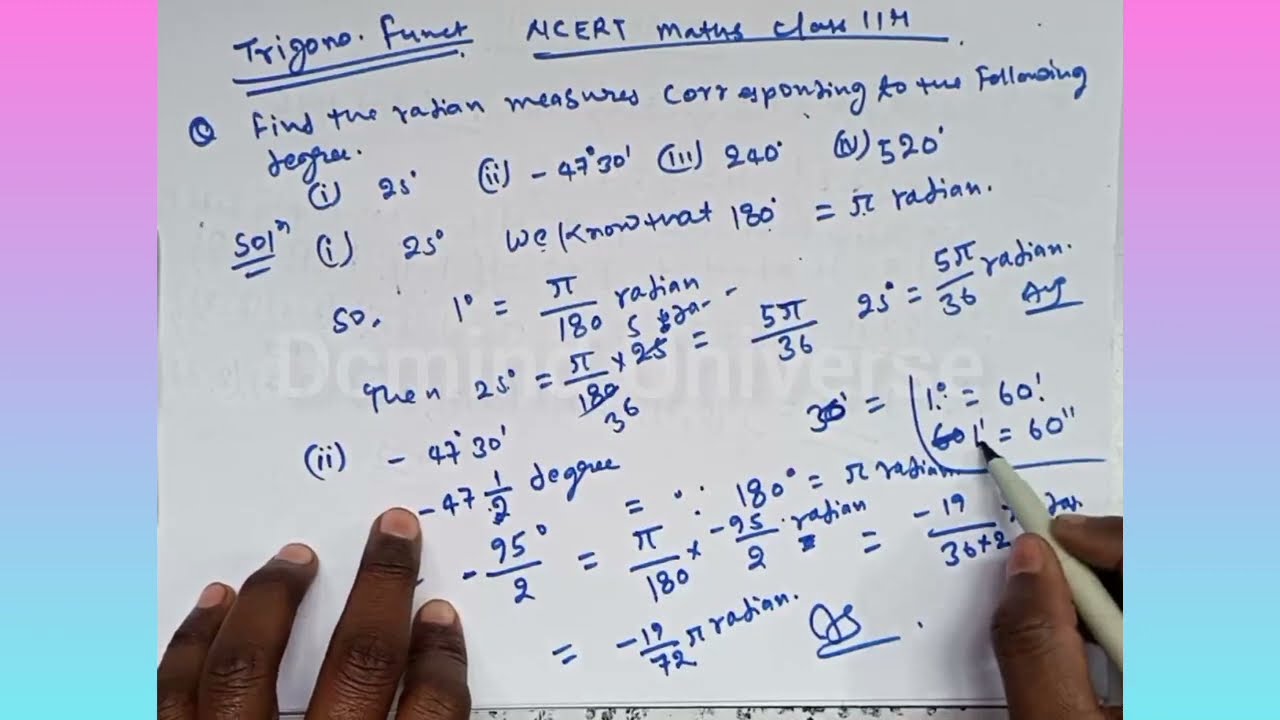 Trigono. Funct NCERT Maths Class 11th
Q Find the radian measures corresponding to the following
degree.
(i) 25° (ii) - 47°30' (iii) 240° (iv) 520°
Solⁿ (i) 25° We know that 180° = π radian.
So, 1° = π/180 radian
Then 25° = π/180 × 25 = 5π/36 25° = 5π/36 radian. Ans
36 5
Dcmind Universe
(ii) - 47°30' 30' = 1° = 60'
1' = 60"
- 47 1/2 degree = ∵ 180° = π radian
- 95°/2 = π/180 × -95/2 radian = -19/36×2
= -19/72 π radian. Ans